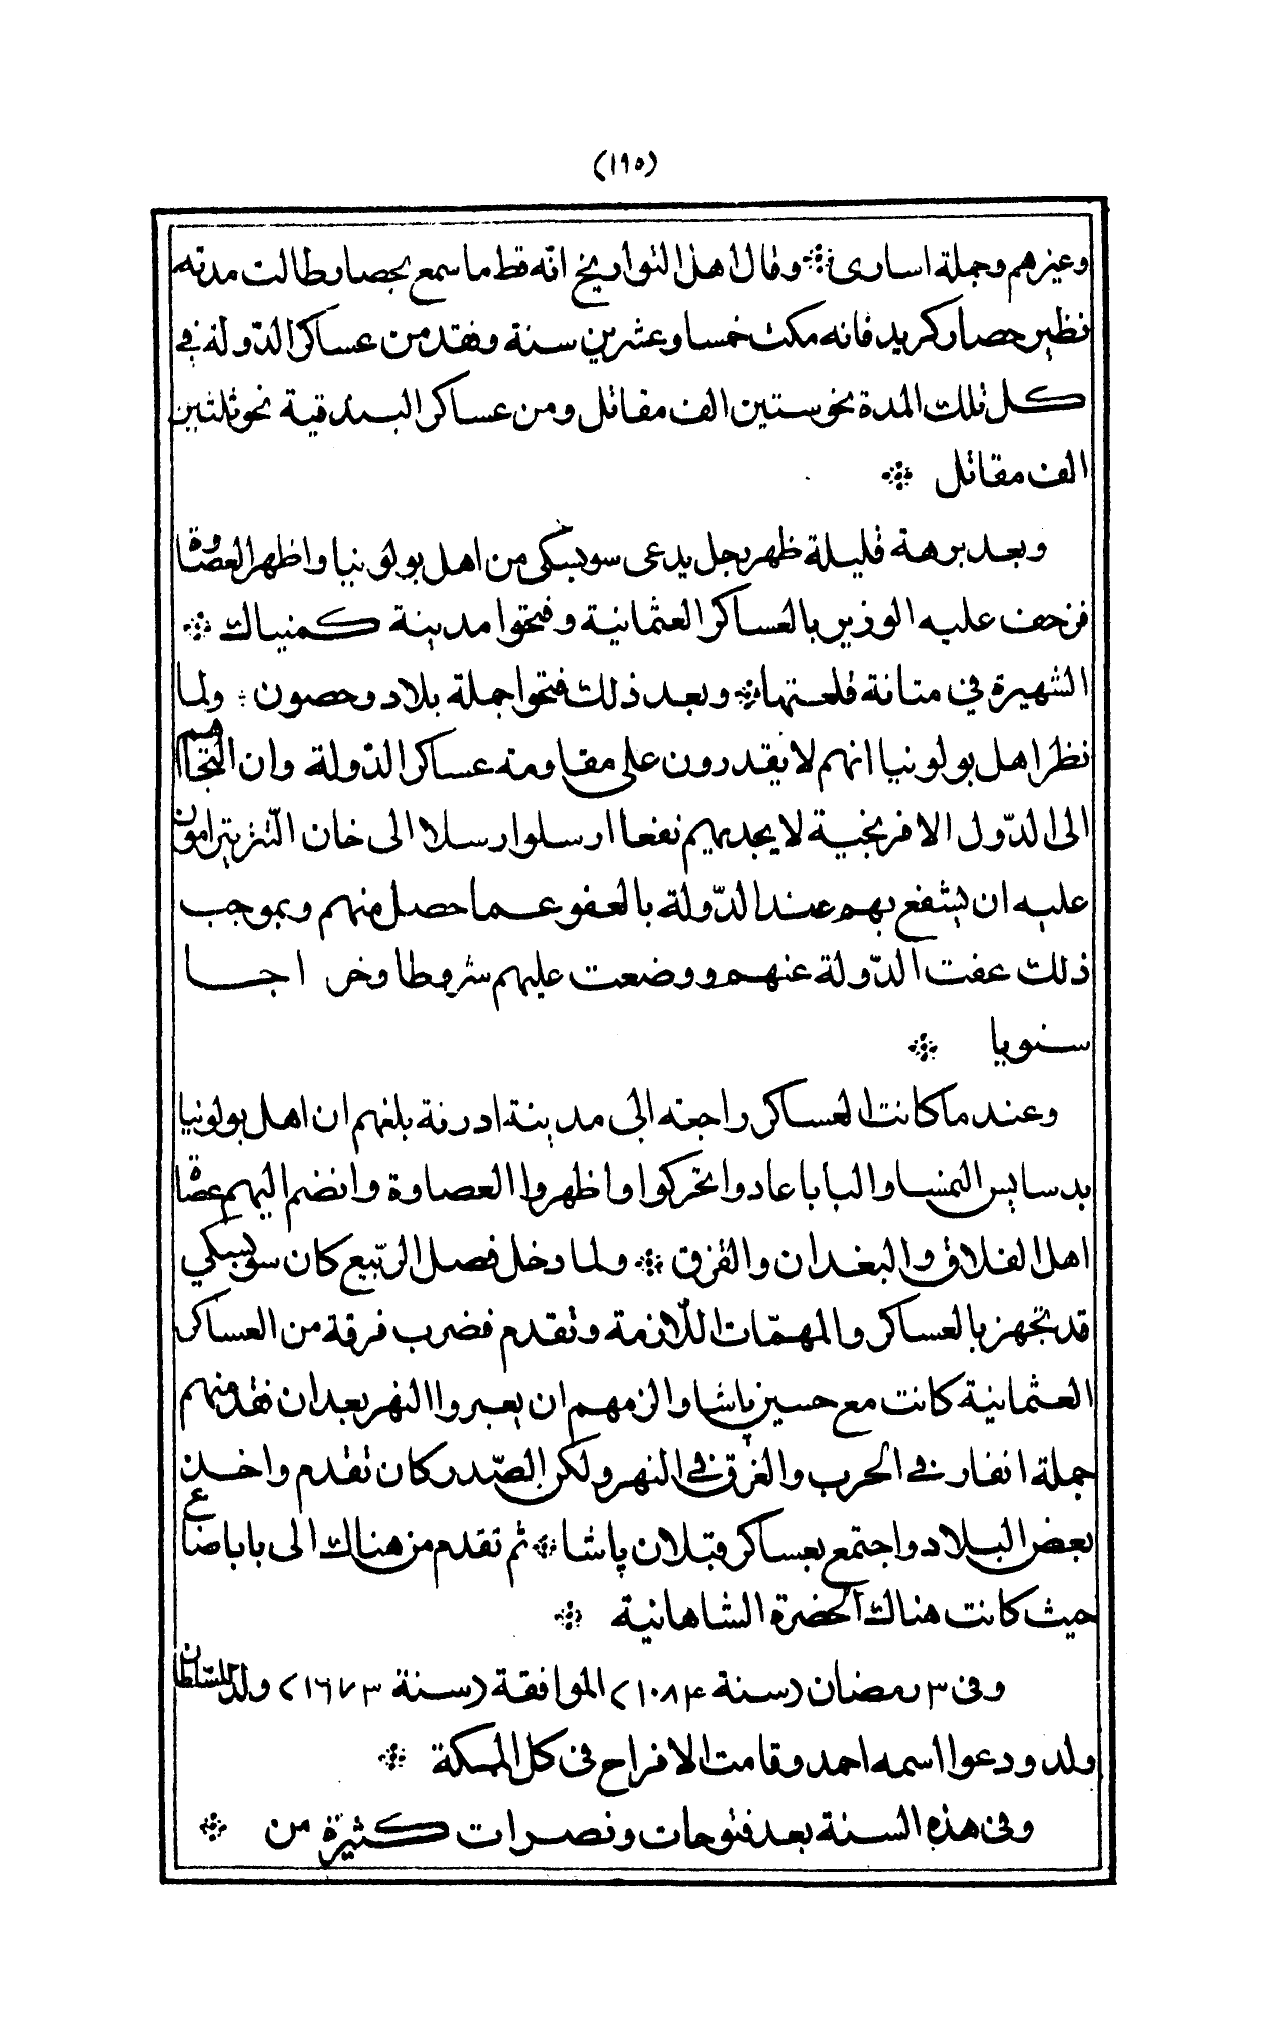 (١٩٥)
وغيرهم وجملة اسارى ۞ وقال اهل التواريخ انّه قط ما سمع بحصار طالت مدته
نظير حصار كريد فانه مكث خمسا وعشرين سنة وفقد من عساكر الدّولة في
كل تلك المدة نحو ستين الف مقاتل ومن عساكر البندقية نحو ثلثين
الف مقاتل ۞
وبعد برهة قليلة ظهر رجل يدعى سوبسكى من اهل بولونيا واظهر العصاوة
فزحف عليه الوزير بالعساكر العثمانية وفتحوا مدينة كمنياك ۞
الشهيرة في متانة قلعتها ۞ وبعد ذلك فتحوا جملة بلاد وحصون ؛ ولما
نظر اهل بولونيا انهم لا يقدرون على مقاومة عساكر الدّولة وان التجاهم
الى الدّول الافرنجية لا يجديهم نفعا ارسلوا رسلا الى خان التّتر يترامون
عليه ان يتشفع بهم عند الدّولة بالعفو عما حصل منهم وبموجب
ذلك عفت الدّولة عنهم ووضعت عليهم شروطا وخراجا
سنويا ۞
وعند ما كانت العساكر راجعه الى مدينة ادرنة بلغهم ان اهل بولونيا
بدسايس النمسا والبابا عادوا تحركوا واظهروا العصاوة وانضم اليهم عصاة
اهل الفلاق والبغدان والقزق ۞ ولما دخل فصل الرّبيع كان سوبسكي
قد تجهز بالعساكر والمهمّات اللّازمة وتقدم فضرب فرقة من العساكر
العثمانية كانت مع حسين پاشا والزمهم ان يعبروا النهر بعد ان فقد منهم
جملة انفار في الحرب والغرق في النهر ولكن الصّدر كان تقدم واخذ
بعض البلاد واجتمع بعساكر قبلان پاشا ۞ ثم تقدم من هناك الى باباضاع
حيث كانت هناك الحضرة الشاهانية ۞
وفى ٣ رمضان (سنة ١٠٨٤) الموافقة (سنة ١٦٧٣) ولد للسّلطان
ولد ودعوا اسمه احمد وقامت الافراح فى كل المملكة ۞
وفى هذه السنة بعد فتوحات ونصرات كثيرة من ۞